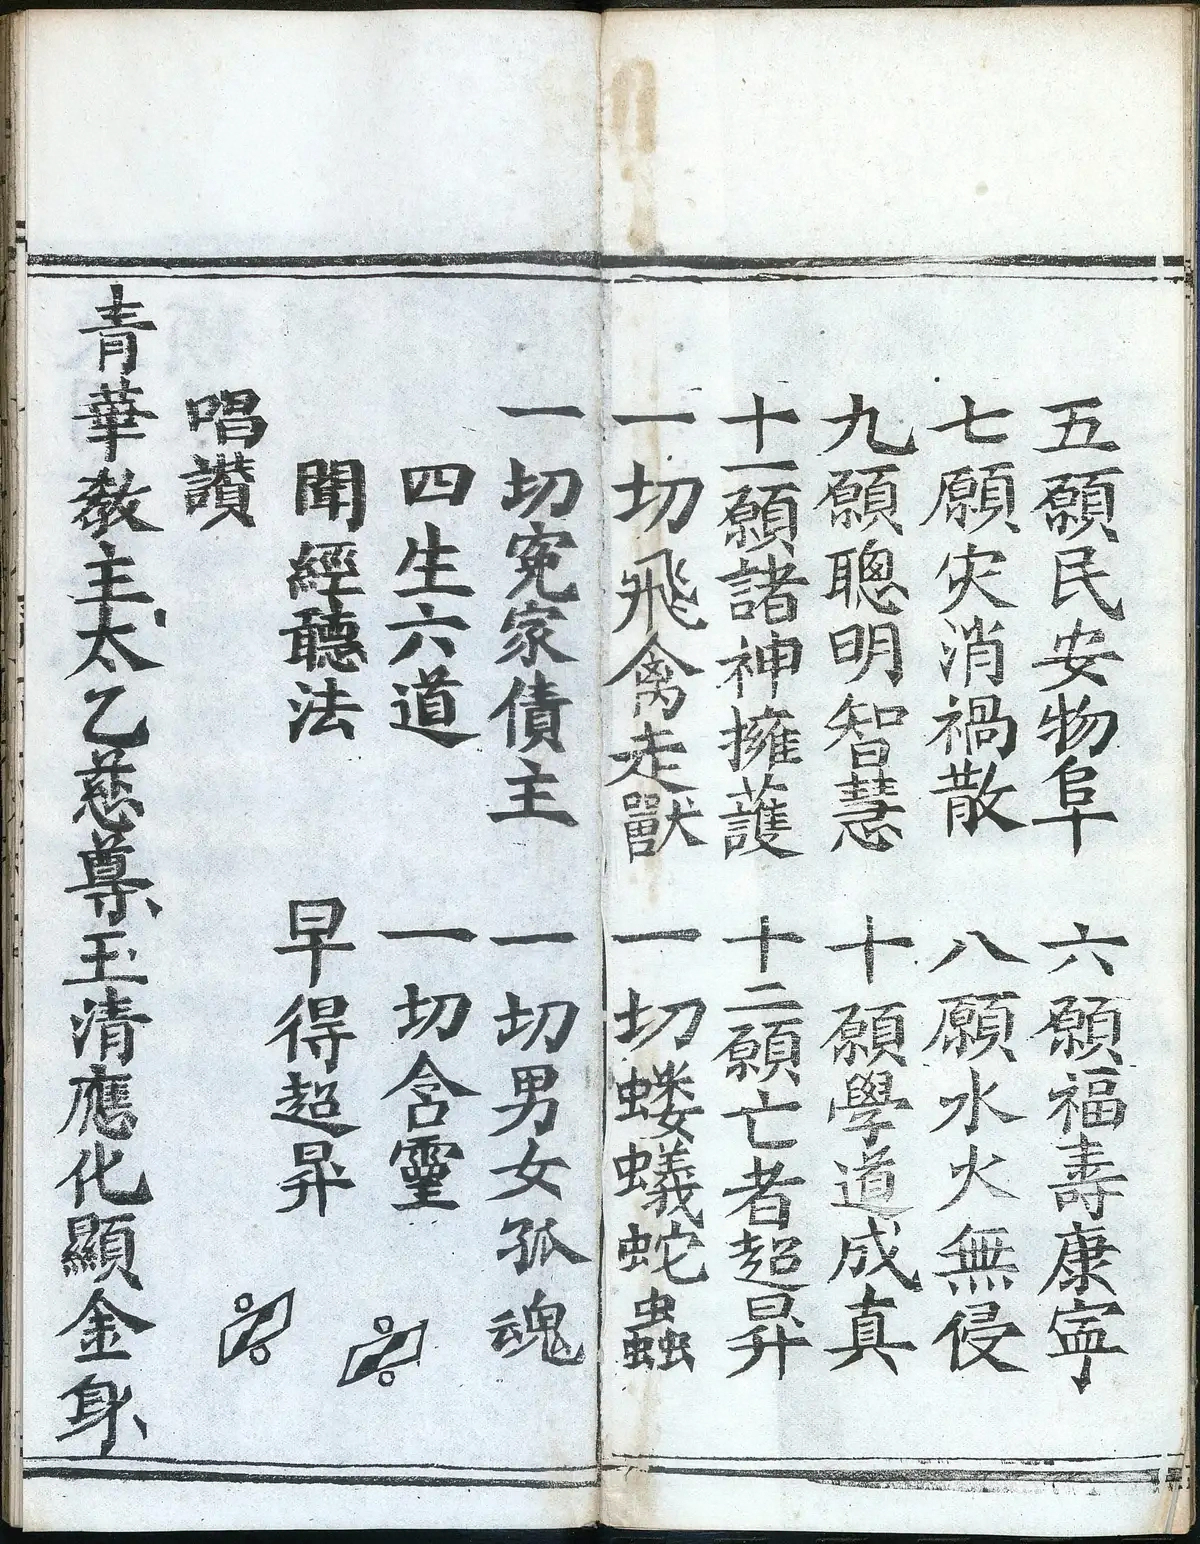 五願民安物阜　六願福壽康寧
七願灾消禍散　八願水火無侵
九願聰明智慧　十願學道成真
十一願諸神擁護　十二願亡者超昇
一切飛禽走獸　一切蝼蟻蛇蟲
一切冤家債主　一切男女孤魂
四生六道　一切含靈
聞經聽法　早得超昇
唱讚
青華教主太乙慈尊玉清應化顯金身